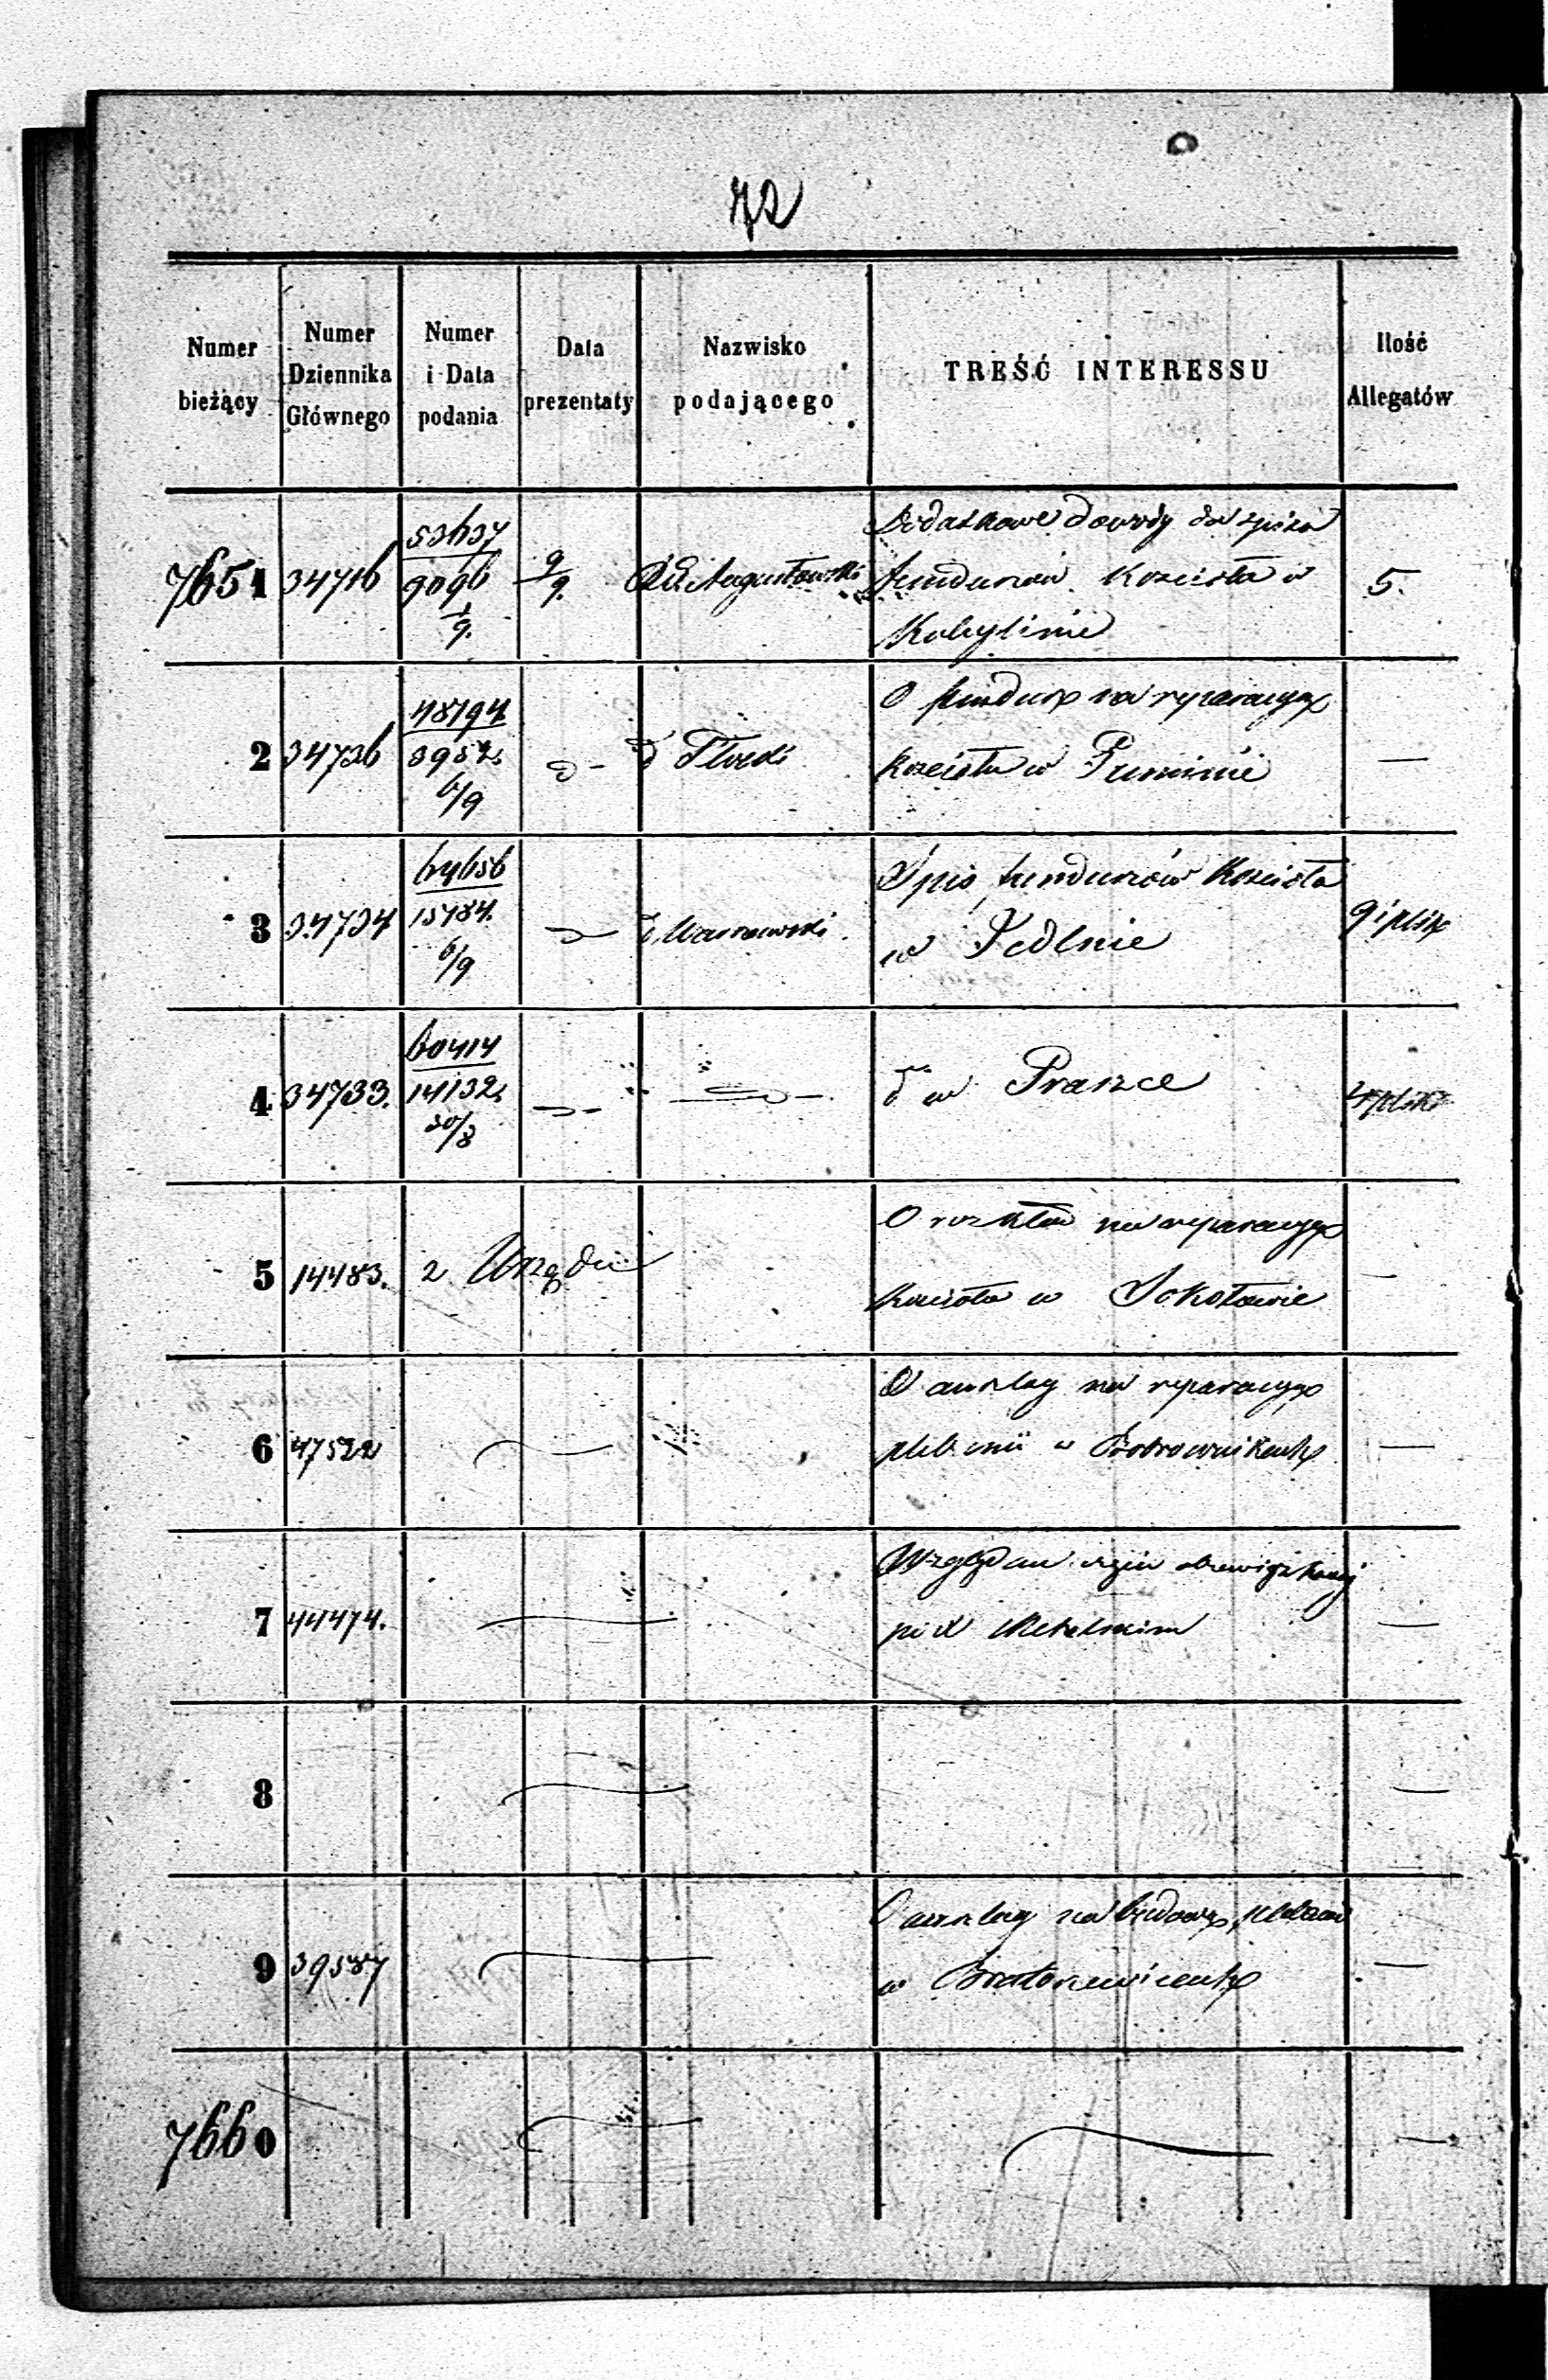 72
Numer bieżący
Numer Dziennika Głównego
Numer i Data podania
Data prezentaty
Nazwisko podającego
TREŚĆ INTERESSU
Ilość Allegatów
7651 34716 9096 9/9 Augustowski 5.
Dodatkowe dowody do spisu
funduszów Kościoła w
Kobylinie
2 34726 48194 6/9 Płocki —
O fundusz na reparacyę
Kościoła w
3 34734 64656 15784. 6/9 Warszawski
Spis funduszów Kościoła
w Jedlnie
4 34733. 60414 14132 30/8
do w Prazce
5 14483. z Urzędu —
O rozkład na reparacyę
Kościoła w Sokołowie
6 47522 —
O anszlag na reparacyę
plebanii w Bobrownikach
7 44474. —
Względem
pod
8 —
9 39587 —
O anszlag na budowę plebanii
w Bratoszewicach
7660 —